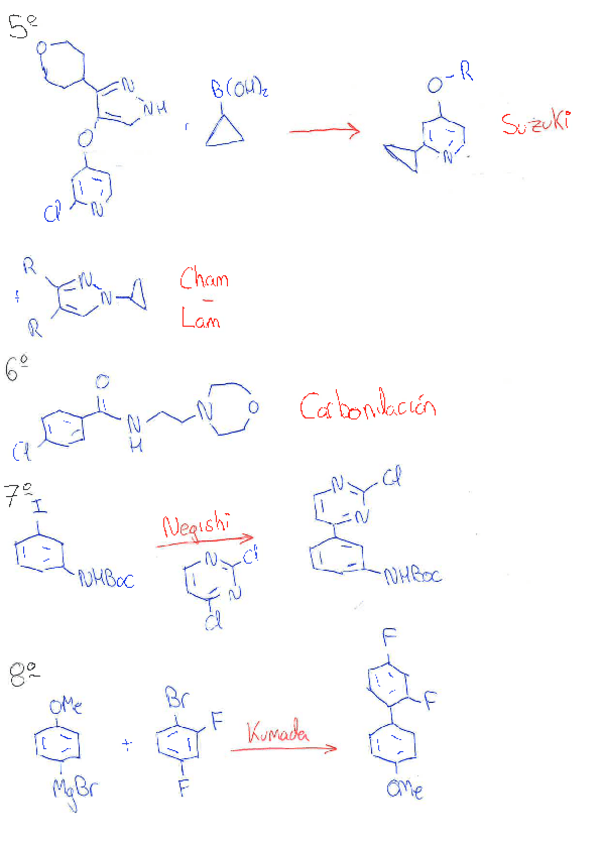 5º
O
N
NH
O
Cl
N
B(OH)₂
O-R
N
Suzuki
R
N
+
N
R
Cham
-
Lam
6º
O
N
H
N
O
Cl
Carbonilación
7º
I
NHBoc
Negishi
N
Cl
N
Cl
N
Cl
N
NHBoc
8º
OMe
MgBr
+
Br
F
F
Kumada
F
F
OMe